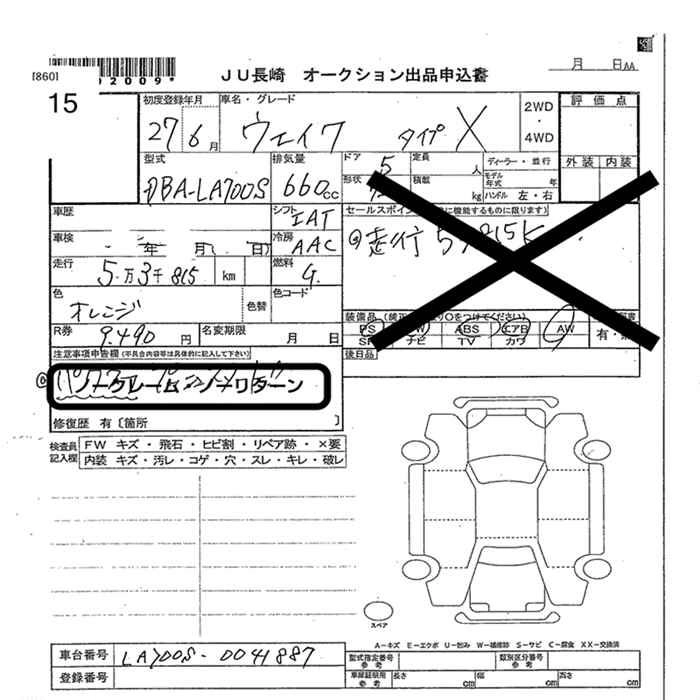 [860]
2009*
JU長崎 オークション出品申込書
月 日AA
15
初度登録年月 車名・グレード
27 6月 ウェイク タイプ X
2WD
・
4WD
評価点
外装 内装
型式 排気量 ドア 定員 ディーラー・並行
DBA-LA700S 660cc 5 人
形状 積載 kg
モデル年式 年
ハンドル 左・右
車歴 シフト IAT
車検 年 月 日 冷房 AAC
走行 5万3千815 km 燃料 G.
セールスポイント
走行
色 オレンジ 色替 色コード
R券 9.490円 名変期限 月 日
装備品
PS ABS エアB AW
ナビ TV カワ 有・
後日品
注意事項申告欄(不具合内容等は具体的に記入して下さい)
ノークレームノーリターン
修復歴 有〔箇所 〕
検査員記入欄
FW キズ・飛石・ヒビ割・リペア跡・×要
内装 キズ・汚レ・コゲ・穴・スレ・キレ・破レ
スペア
A-キズ E-エクボ U-凹み W-補修跡 S-サビ C-腐食 XX-交換済
車台番号 LA700S-0041887
登録番号
型式指定番号 参考 類別区分番号 参考
長さ cm 幅 cm 高さ cm